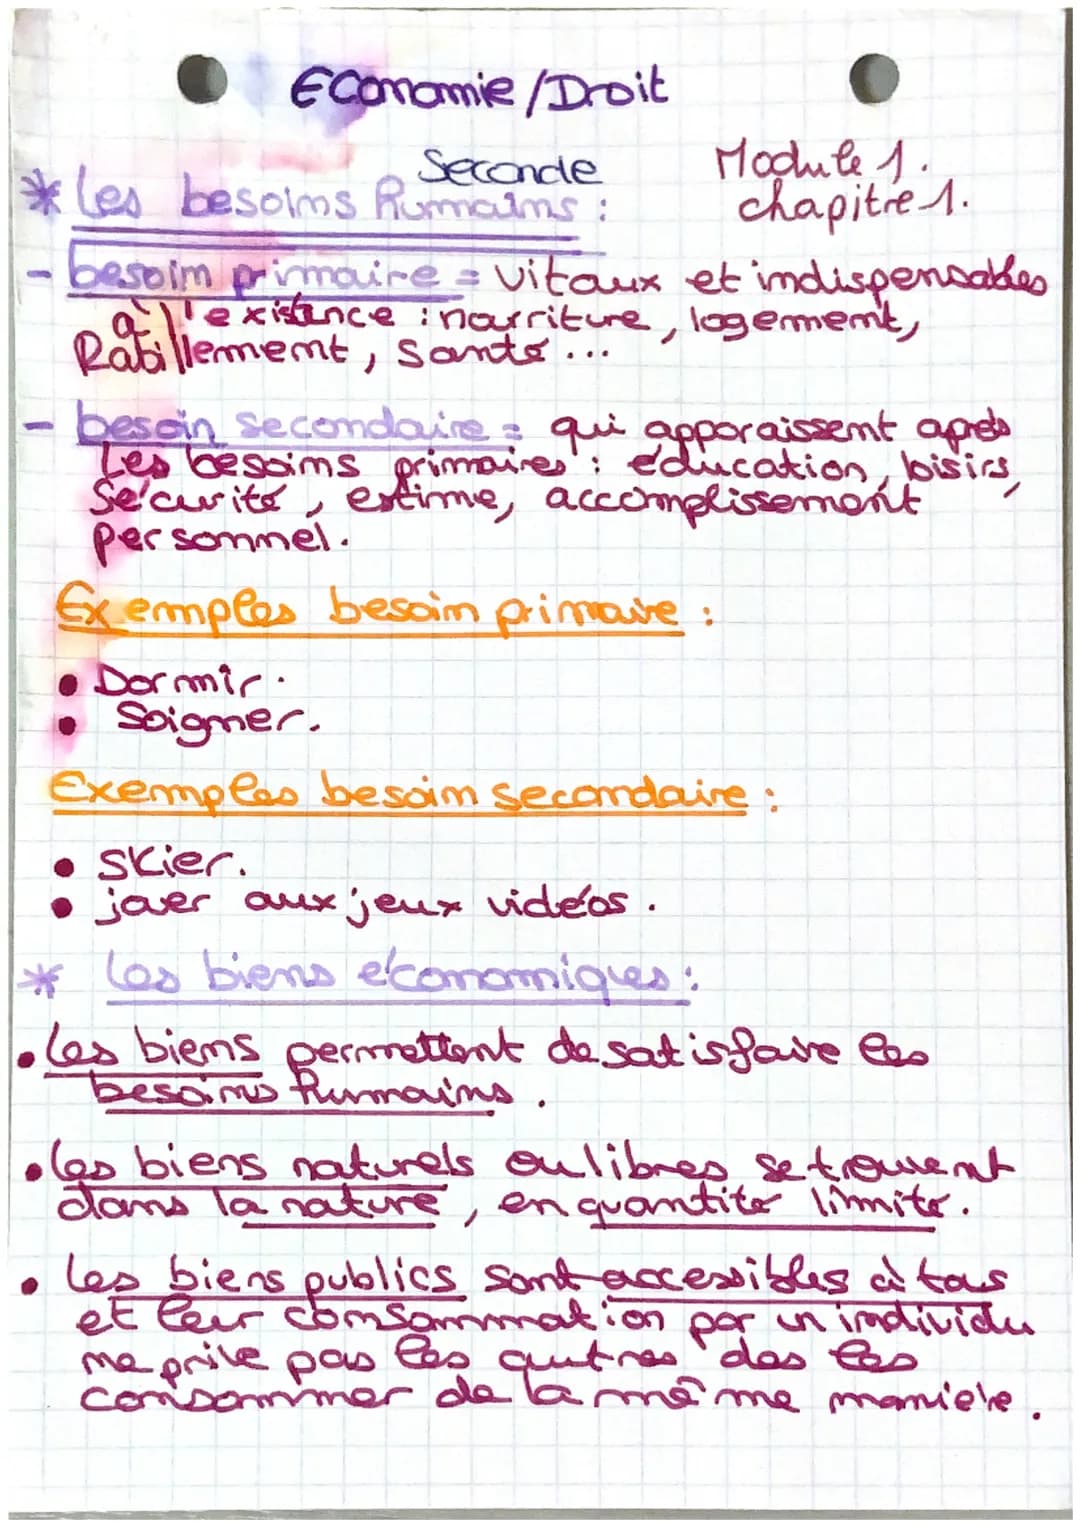 Economie/Droit
Seconde
Module 1.
chapitre 1.
* les besoins humains :
- besoin primaire = vitaux et indispensables
à l'existence : nourriture, logement,
habillement, santé ...
- besoin secondaire = qui apparaissent après
les besoins primaires : éducation, loisirs,
sécurité, estime, accomplissement
personnel.
Exemples besoin primaire :
• Dormir.
• Soigner.
Exemples besoin secondaire :
• skier.
• jouer aux jeux vidéos.
* les biens économiques :
• les biens permettent de satisfaire les
besoins humains.
• les biens naturels ou libres se trouvent
dans la nature, en quantité limité.
• les biens publics sont accessibles à tous
et leur consommation par un individu
ne prive pas les autres des les
consommer de la même manière.